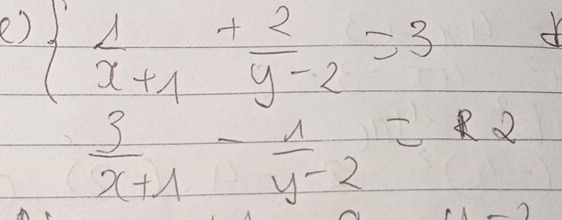 e) { 1/(x+1) + 2/(y-2) = 3
3/(x+1) - 1/(y-2) = 2